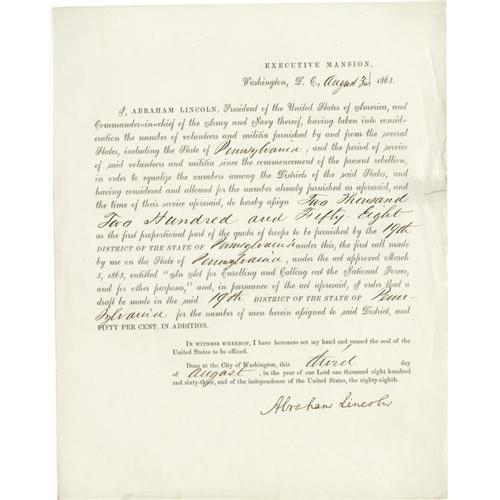 EXECUTIVE MANSION,
Washington, D. C., August 3d, 1863.
I, ABRAHAM LINCOLN, President of the United States of America, and
Commander-in-chief of the Army and Navy thereof, having taken into consid-
eration the number of volunteers and militia furnished by and from the several
States, including the State of Pennsylvania, and the period of service
of said volunteers and militia since the commencement of the present rebellion,
in order to equalize the numbers among the Districts of the said States, and
having considered and allowed for the number already furnished as aforesaid, and
the time of their service aforesaid, do hereby assign Two Thousand
Two Hundred and Fifty-Eight
as the first proportional part of the quota of troops to be furnished by the 19th
DISTRICT OF THE STATE OF Pennsylvania under this, the first call made
by me on the State of Pennsylvania, under the act approved March
3, 1863, entitled "An Act for Enrolling and Calling out the National Forces,
and for other purposes," and, in pursuance of the act aforesaid, I order that a
draft be made in the said 19th DISTRICT OF THE STATE OF Penn-
sylvania for the number of men herein assigned to said District, and
FIFTY PER CENT. IN ADDITION.
IN WITNESS WHEREOF, I have hereunto set my hand and caused the seal of the
United States to be affixed.
Done at the City of Washington, this third day
of August, in the year of our Lord one thousand eight hundred
and sixty-three, and of the independence of the United States, the eighty-eighth.
Abraham Lincoln